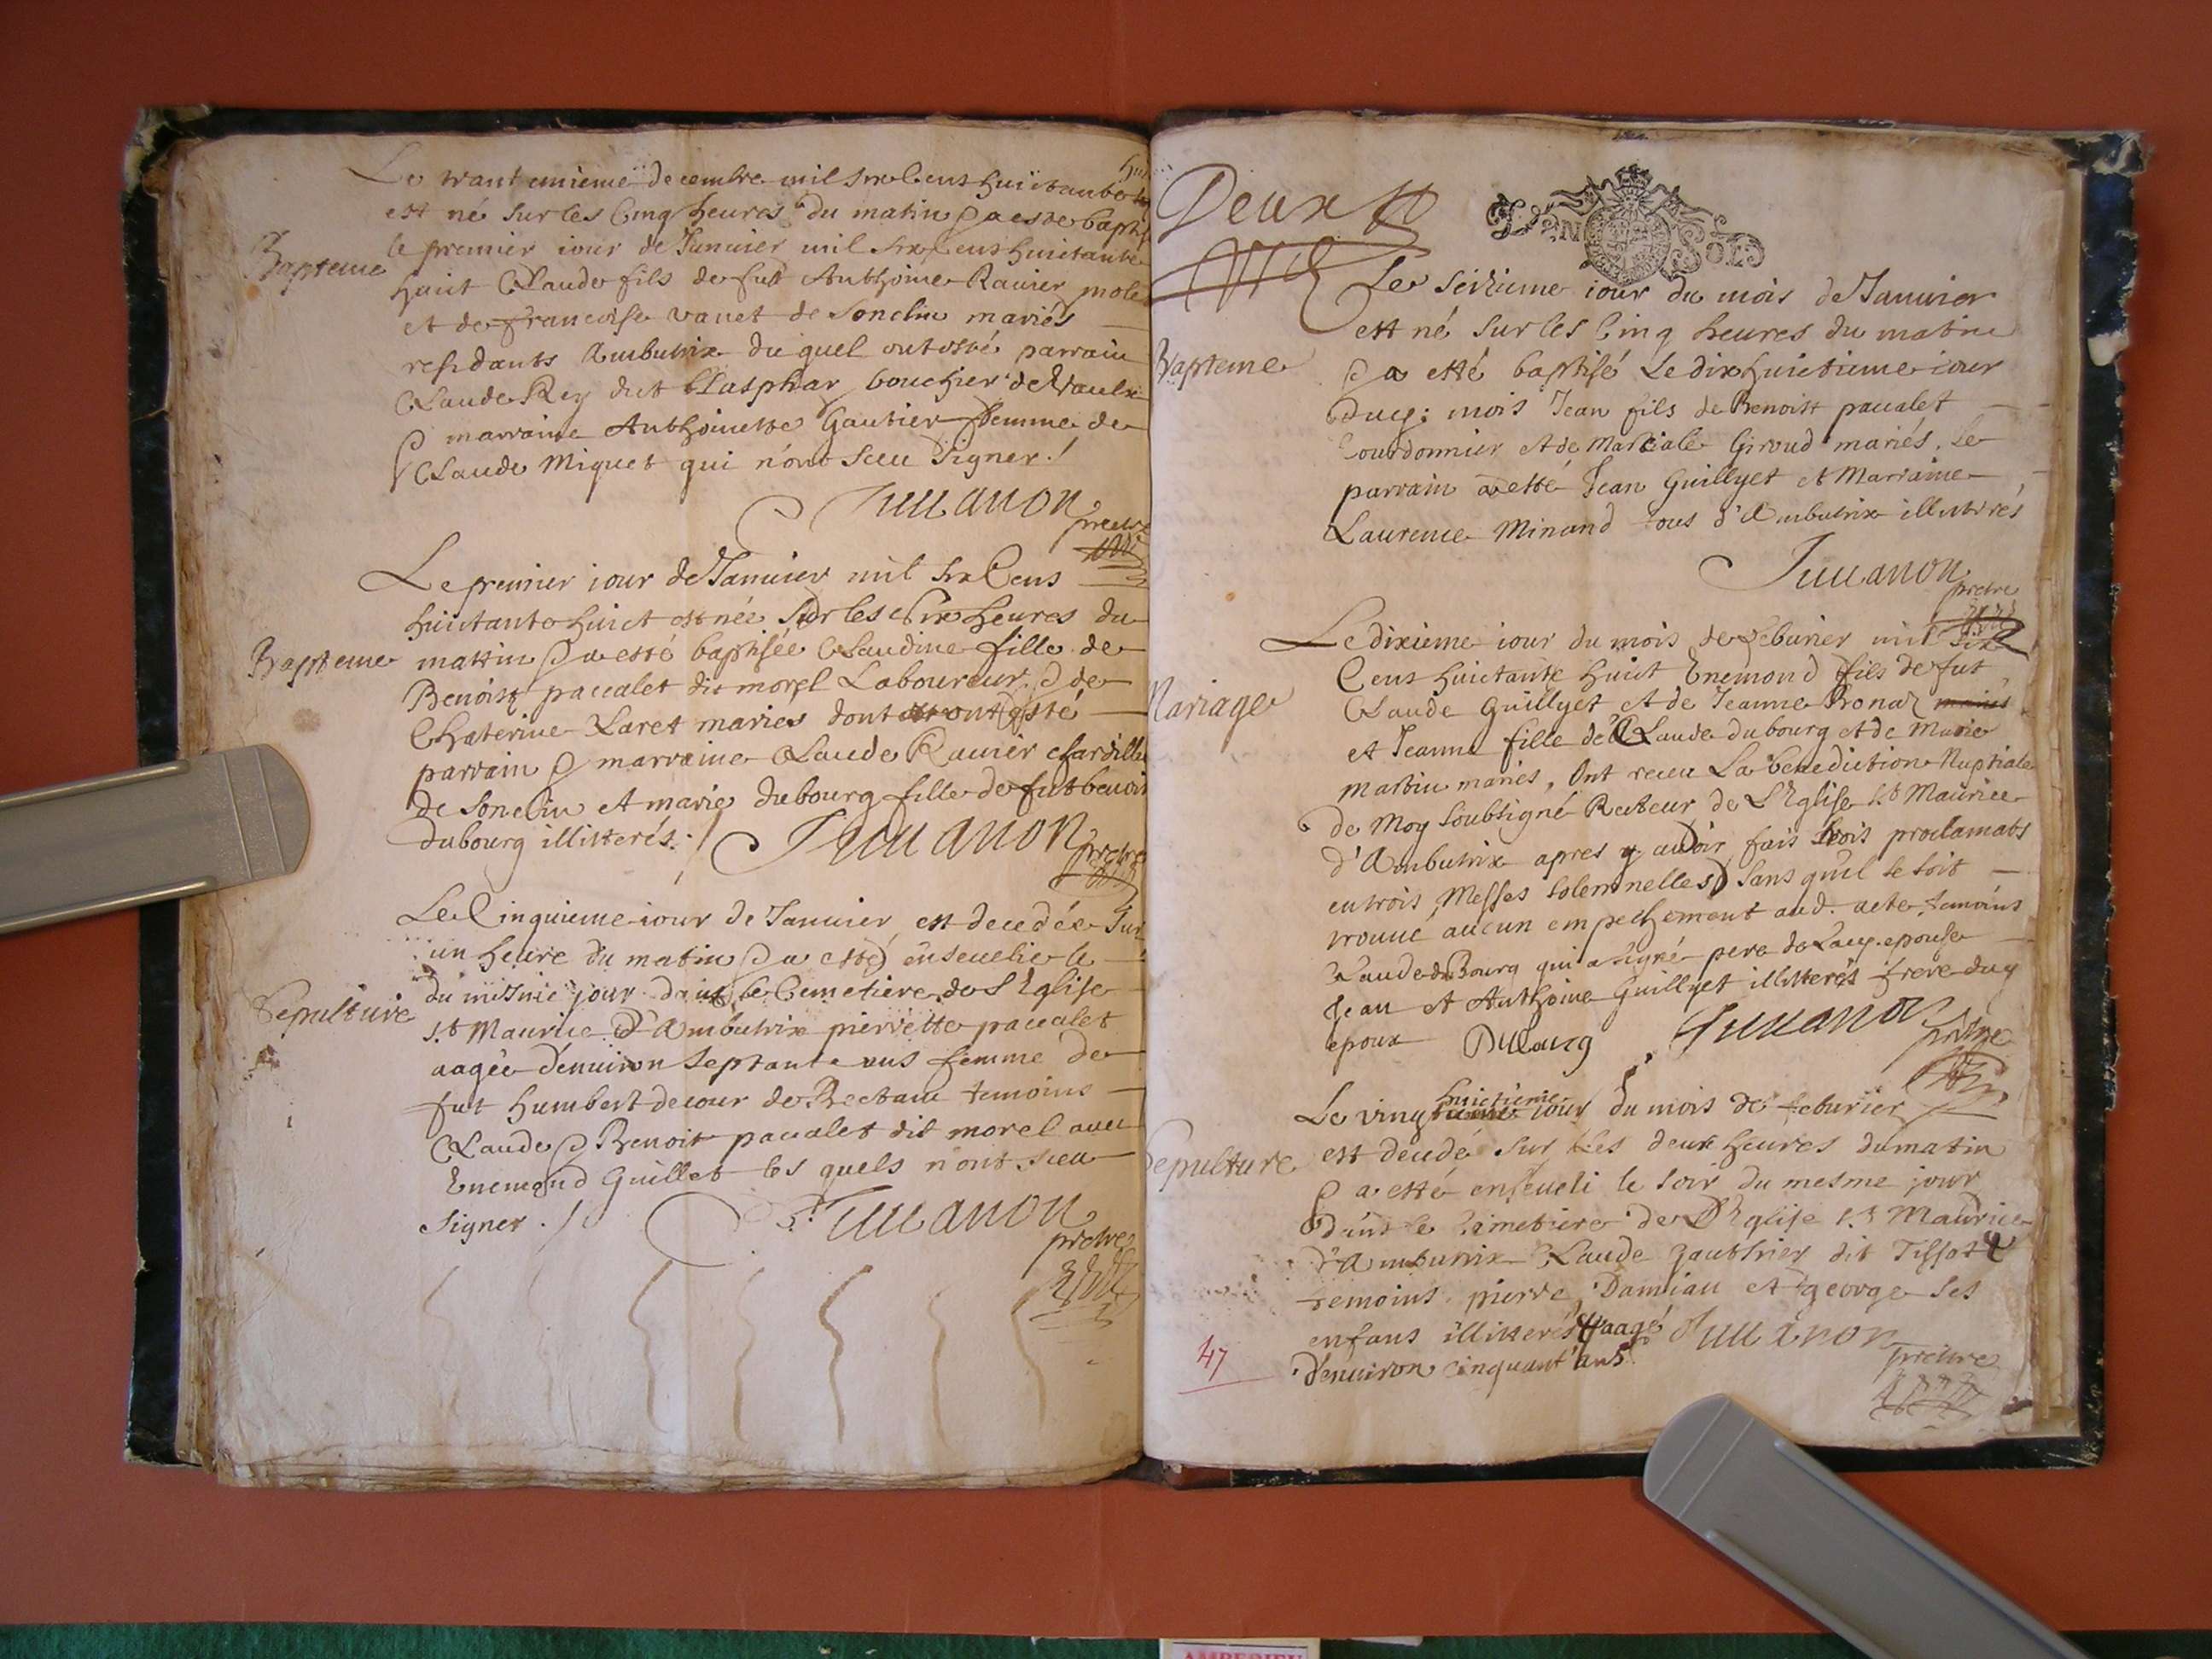 Le trant unieme decembre mil six Cens huictante
est né sur les Cinq heures du matin & a esté bapti
le premier iour de Januier mil six Cens huictante
Bapteme
huict Claude fils de fut Anthoine Rauier
et de francoise vanet de Sonclin mariés
residants Ambutrix du quel ont esté parrain
Claude Rey dit Blasphar boucher de Vaulx
& marraine Anthoinette Gautier femme de
Claude Miquet qui n'ont sceu signer ./
Juuanon
pretre
Le premier iour de Januier mil six Cens
huictante huict est née sur les six heures du
Bapteme
mattin & a esté baptisée Claudine fille de
Benoist paccalet dit morel Laboureur & de
Chaterine Laret maries dont ont esté
parrain & marraine Claude Rauier
de Sonclin et marie dubourg fille de fut benoit
dubourg illitterés ./ Juuanon
pretre
Le Cinquieme iour de Januier est decedée sur
un heure du matin & a esté enseuelie le
Sepulture
du mesme jour dans le Cemetiere de l Eglise
st Maurice d'Ambutrix pierrette paccalet
aagée d'enuiron septante ans femme de
fut humbert decour de Bettant temoins
Claude & Benoit paccalet dit morel auec
Enemond Guillet les quels n'ont sceu
signer ./ Juuanon
pretre
Deux
GEN SOLS
Le seizieme iour du mois de Januier
est né sur les Cinq heures du matin
Bapteme
& a etté baptisé Le dixhuictieme iour
duq: mois Jean fils de Benoist paccalet
Courdonnier et de Martiale Giroud mariés. Le
parrain a etté Jean Guillyet et Marraine
Laurence Minand tous d'Ambutrix illittrés
Juuanon
pretre
Le dixieme iour du mois de feburier mil six
Cens huictante huict Enemond fils de fut
Mariage
Claude Guillyet et de Jeanne Bonaz mariés
et Jeanne fille de Claude dubourg et de Marie
Martin maries, Ont receu La benediction Nuptiale
de Moy soubsigné Recteur de L'Eglise st Maurice
d'Ambutrix apres y auoir fais trois proclamats
en trois Messes solemnelles sans qu'il se soit
trouue aucun empechement aud. acte, temoins
Claude duBourg qui a signé pere de Laq. epouse
Jean et Anthoine Guillyet illitterés frere duq
epoux Dubourg Juuanon
pretre
huictieme
Le vingt iour du mois de feburier
est decedé sur les deux heures du matin
Sepulture
& a etté enseueli le soir du mesme jour
dans le Cimetiere de L'Eglise st Maurice
d'Ambutrix Claude gauthier dit Tissot &
temoins pierre, Damian et george ses
enfans illitterés & aagé Juuanon
d'enuiron cinquant'ans
pretre
47
AMBERIEU